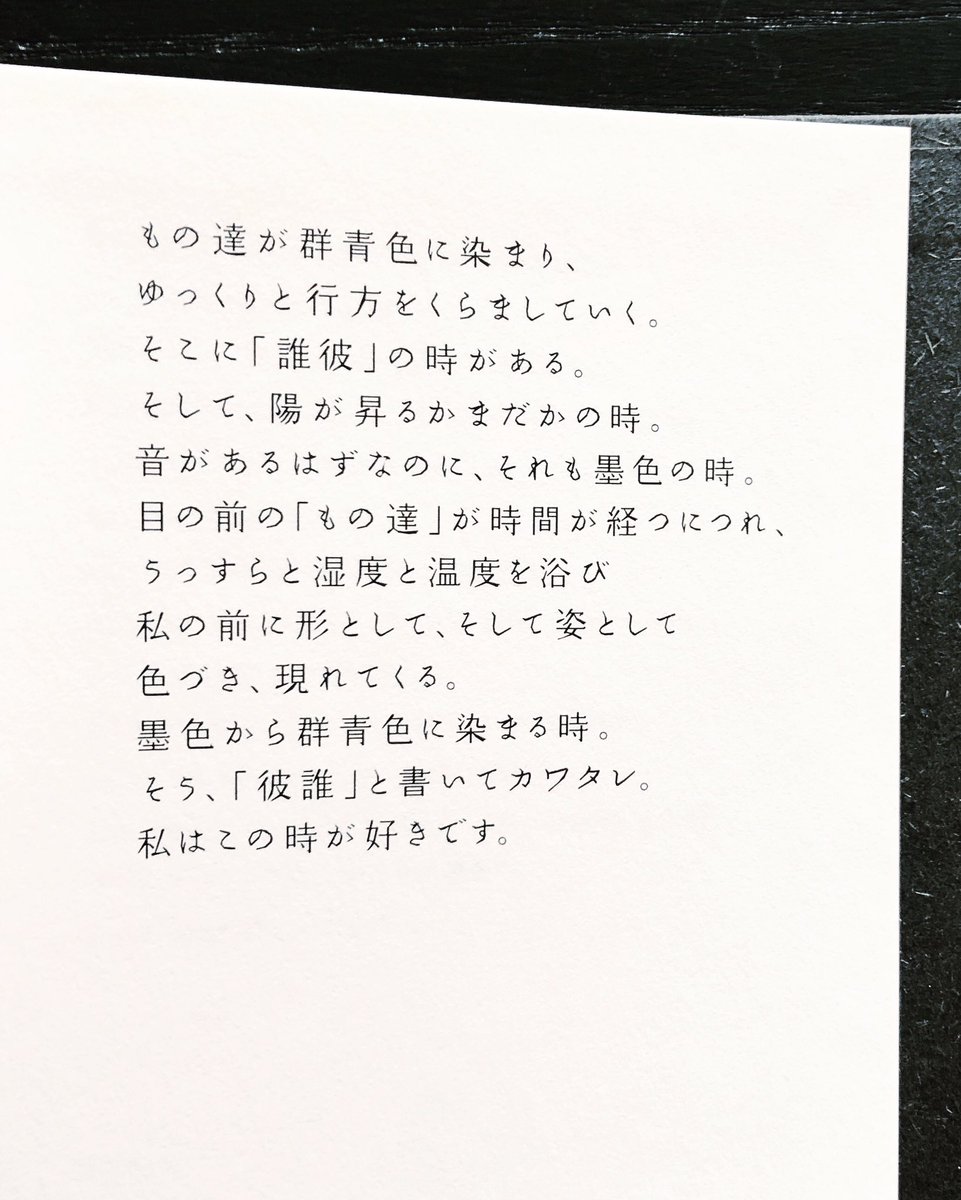 もの達が群青色に染まり、
ゆっくりと行方をくらましていく。
そこに「誰彼」の時がある。
そして、陽が昇るかまだかの時。
音があるはずなのに、それも墨色の時。
目の前の「もの達」が時間が経つにつれ、
うっすらと湿度と温度を浴び
私の前に形として、そして姿として
色づき、現れてくる。
墨色から群青色に染まる時。
そう、「彼誰」と書いてカワタレ。
私はこの時が好きです。